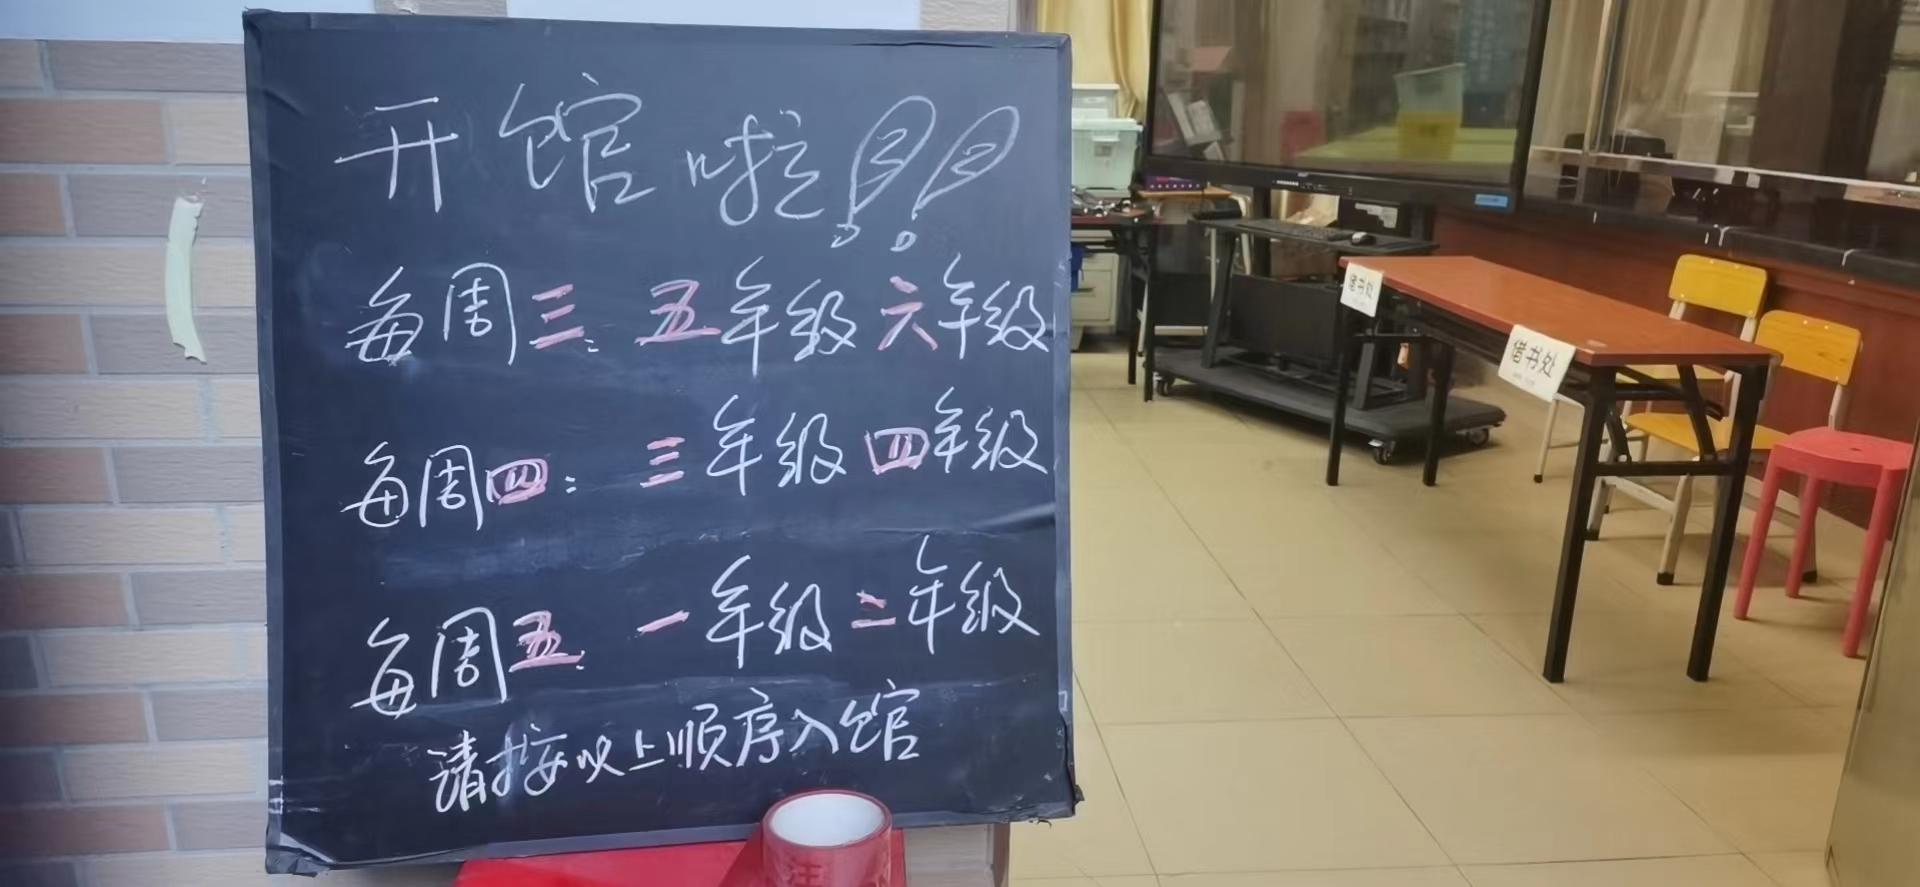 开馆啦!!
每周三: 五年级 六年级
每周四: 三年级 四年级
每周五: 一年级 二年级
请按以上顺序入馆
借书处